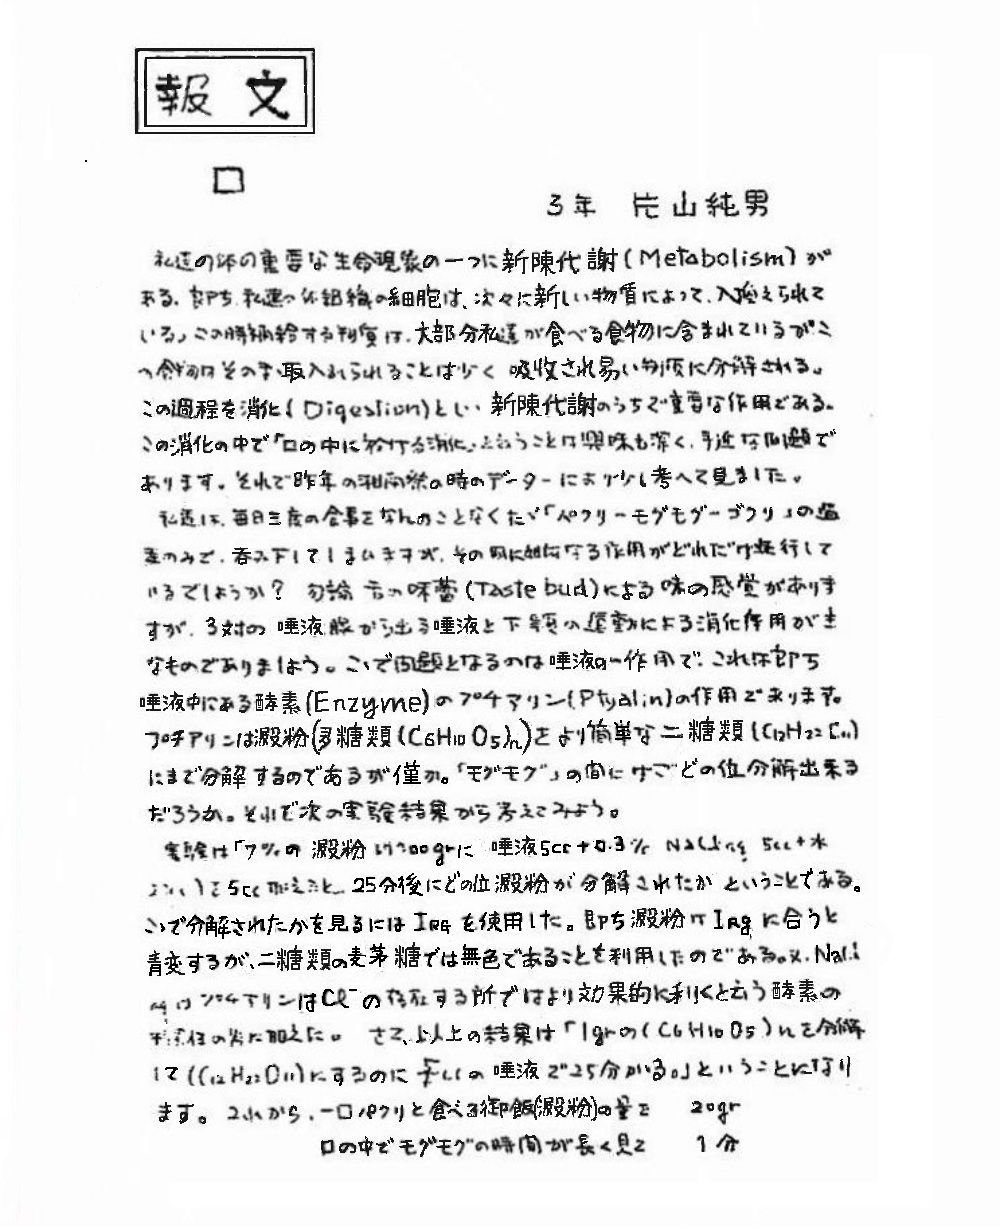 報文
口
3年 片山純男
私達の体の重要な生命現象の一つに新陳代謝(Metabolism)が
ある。即ち、私達の体組織の細胞は、次々に新しい物質によって、入換えられて
いる。この時補給する物質は、大部分私達が食べる食物に含まれているがこ
の食物はそのまゝ取入れられることは少く 吸収され易い物質に分解される。
この過程を消化(Digestion)といゝ新陳代謝のうちで重要な作用である。
この消化の中で「口の中に於ける消化」と云うことは興味も深く、手近な問題で
あります。それで昨年の湘南祭の時のデーターにより少し考へて見ました。
私達は、毎日三度の食事をなんのことなくたゞ「パクリーモグモグーゴクリ」の過
程のみで、呑み下してしまいますが、その間に如何なる作用がどれだけ進行して
いるでしようか? 勿論 舌の味蕾(Taste bud)による味の感覚がありま
すが、3対の 唾液腺から出る唾液と下顎の運動による消化作用が主
なものでありましよう。こゝで問題となるのは唾液の一作用で、これは即ち
唾液中にある酵素(Enzyme)のプチアリン(Ptyalin)の作用であります。
プチアリンは澱粉(多糖類(C6H10O5)n)をより簡単な二糖類(C12H22O11)
にまで分解するのであるが僅か「モグモグ」の間に はどの位分解出来る
だろうか。それで次の実験結果から考えてみよう。
実験は「7%の 澱粉 200grに 唾液5cc+0.3% NaCl 5cc+水
を5cc 加えると、25分後にどの位澱粉が分解されたか ということである。
こゝで分解されたかを見るには を使用した。即ち澱粉は に合うと
青変するが、二糖類の麦芽糖では無色であることを利用したのである。又、NaCl
はプチアリンはCl⁻の存在する所ではより効果的に利くと云う酵素の
の為に加えた。 さて、以上の結果は「1grの(C6H10O5)nを分解
して(C12H22O11)にするのに の唾液で25分かゝる。」ということになり
ます。これから、一口パクリと食べる御飯(澱粉)の量を 20gr
口の中でモグモグの時間が長く見て 1分